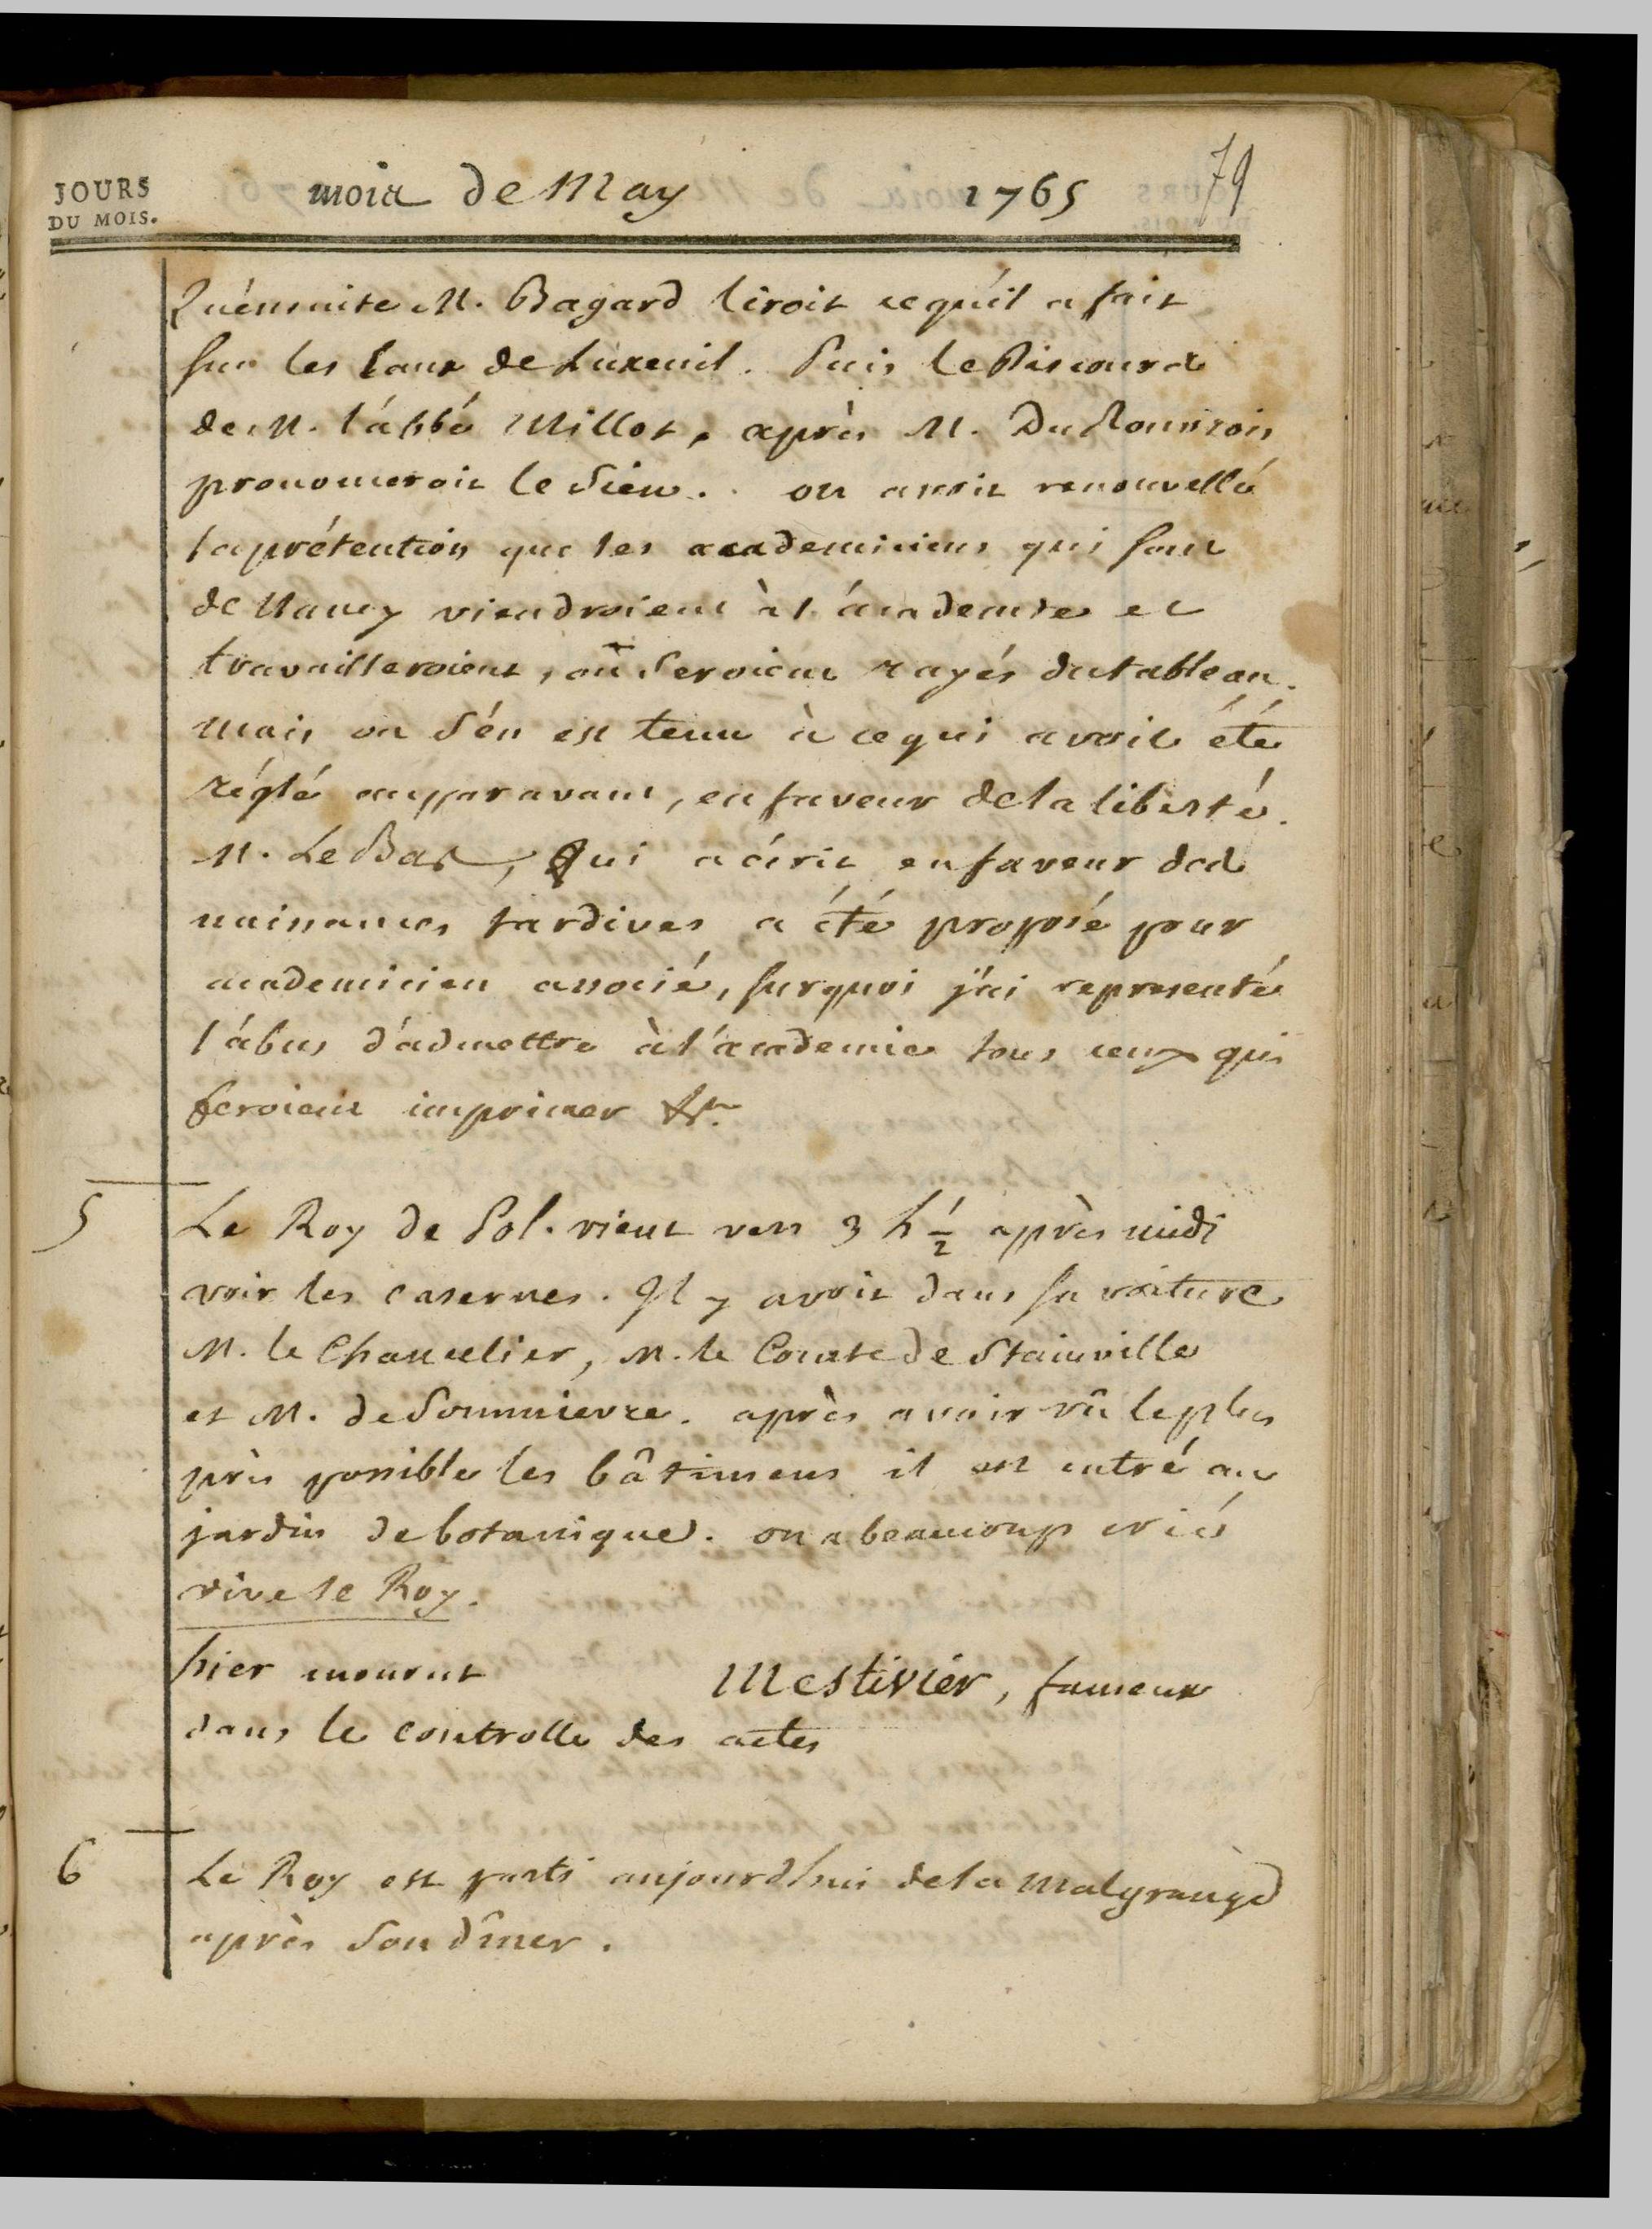 JOURS
DU MOIS.
mois de May 1765 79
Qu'énsuite M. Bagard liroit ce qu'il a fait
sur les Eaux de Luxeuil. Puis le Discours
de M. l'ábbé Millot, après M. Du
prononceroit le Sien. on avoit renouvellé
la prétention que les academiciens qui sont
de Nancy viendroient à l'academie et
travailleroient, où Seroient rayés du tableau.
mais on s'én est tenu à ce qui avoit été
réglé auparavant, en faveur de la liberté.
M. Le Bas, Qui a écrit en faveur des
naissances tardives a été proposé pour
academicien associé, surquoi j'ai representé
l'ábus d'ádmettre à l'academie tous ceux qui
feroient imprimer &c.
5 Le Roy de Pol. vient vers 3 h ½ après midi
voir les casernes. Il y avoit dans sa voiture
M. le Chancelier, M. le Comte de Stainville
et M. de Sommievre. après avoir vû le plus
près possible les bâtimens il est entré au
jardin de botanique. on a beaucoup crié
vive le Roy.
hier mourut Mestivier, fameux
dans le controlle des actes
6 Le Roy est parti aujourdhui de la Malgrange
après Son dîner.